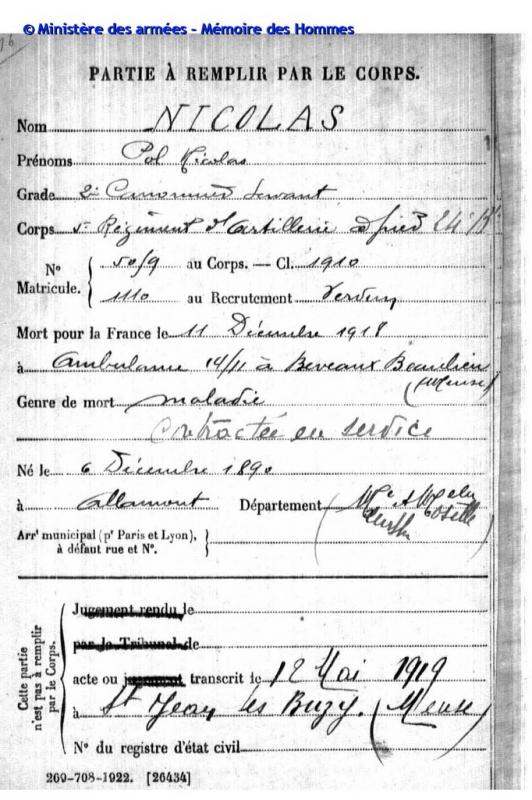 © Ministère des armées - Mémoire des Hommes
PARTIE À REMPLIR PAR LE CORPS.
Nom NICOLAS
Prénoms Pol Nicolas
Grade 2e Canonnier Servant
Corps 5e Régiment d'Artillerie à pied 24e
N° Matricule. 50/9 au Corps. — Cl. 1910
1110 au Recrutement Verdun
Mort pour la France le 11 Décembre 1918
à Ambulance 14/11 à Beveaux Beaulieu
(Meuse)
Genre de mort maladie
contractée en service
Né le 6 Décembre 1890
à Allamont Département Mthe & Moselle
Arrt municipal (pr Paris et Lyon),
à défaut rue et N°.
Cette partie n'est pas à remplir par le Corps.
Jugement rendu le
par le Tribunal de
acte ou jugement transcrit le 12 Mai 1919
à St Jean les Buzy. (Meuse)
N° du registre d'état civil
269-708-1922. [26434]